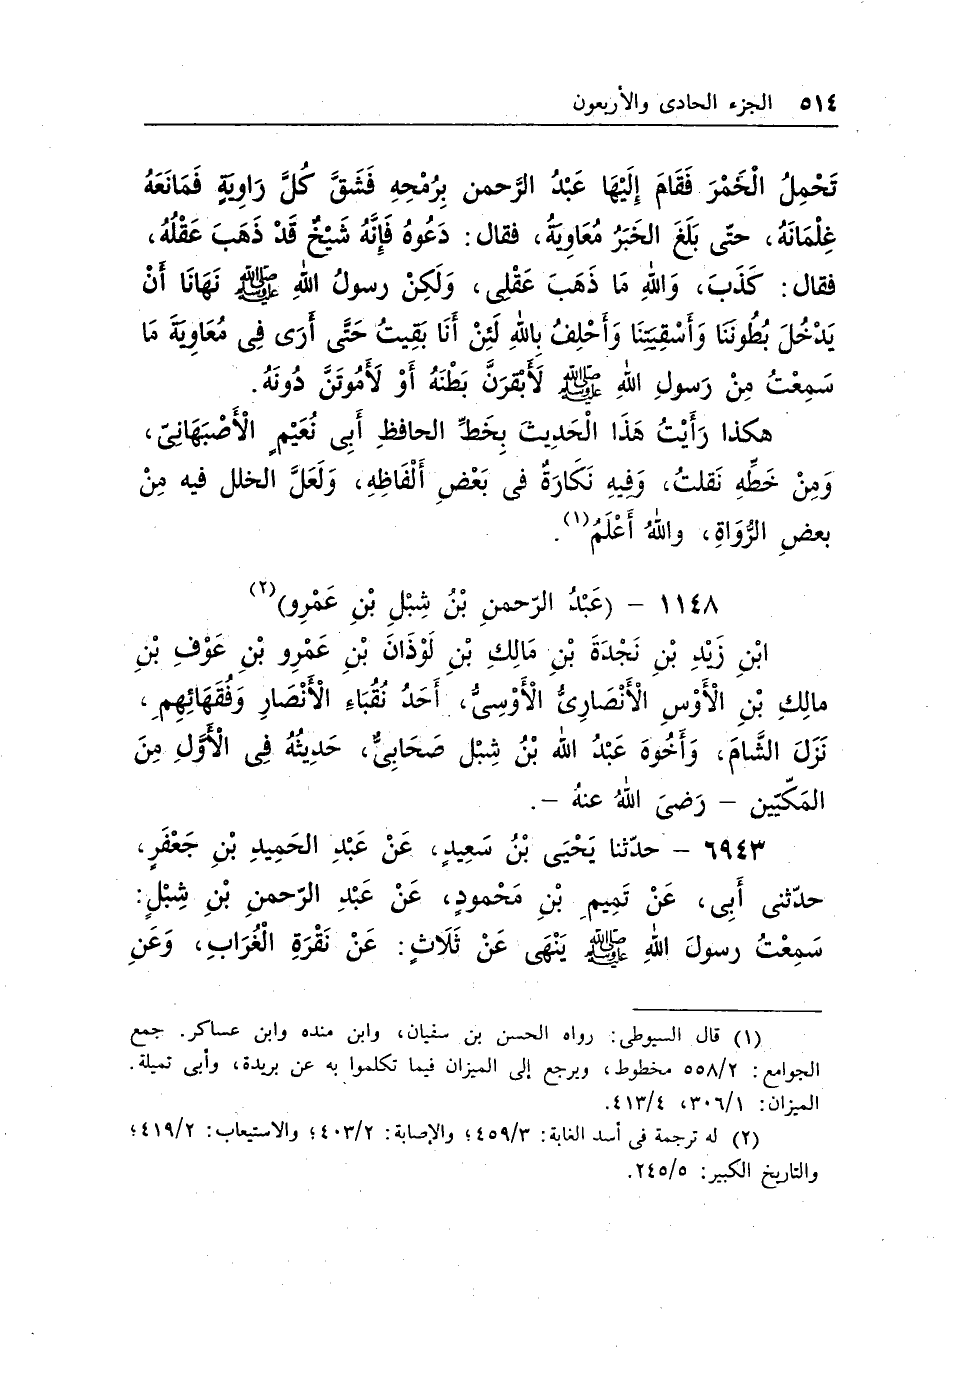 ٥١٤ الجزء الحادى والأربعون
تَحْمِلُ الْخَمْرَ فَقَامَ إِلَيْهَا عَبْدُ الرَّحمن بِرُمْحِهِ فَشَقَّ كُلَّ رَاوِيَةٍ فَمَانَعَهُ
غِلْمَانَهُ، حتّى بَلَغَ الخَبَرُ مُعَاوِيَةُ، فقال: دَعُوهُ فَإِنَّهُ شَيْخٌ قَدْ ذَهَبَ عَقْلُهُ،
فقال: كَذَبَ، وَاللهِ مَا ذَهَبَ عَقْلِى، وَلَكِنْ رسولُ اللهِ ﷺ نَهَانَا أَنْ
يَدْخُلَ بُطُونَنَا وَأَسْقِيَتِنَا وَأَحْلِفُ بِاللهِ لَئِنْ أَنَا بَقِيتُ حَتَّى أَرَى فِى مُعَاوِيَةَ مَا
سَمِعْتُ مِنْ رَسولِ اللهِ ﷺ لَأَبْقَرَنَّ بَطْنَهُ أَوْ لَأَمُوتَنَّ دُونَهُ.
هكذا رَأَيْتُ هَذَا الْحَدِيثَ بِخَطِّ الحافظِ أَبِى نُعَيْمٍ الْأَصْبَهَانِىّ،
وَمِنْ خَطِّهِ نَقلتُ، وَفِيهِ نَكَارَةٌ فى بَعْضِ أَلْفَاظِهِ، وَلَعَلَّ الخلل فيه مِنْ
بعضِ الرُّوَاةِ، واللهُ أَعْلَمُ(١).
١١٤٨ – (عَبْدُ الرّحمنِ بْنُ شِبْلِ بْنِ عَمْرِو)(٢)
ابْنِ زَيْدِ بْنِ نَجْدَةَ بْنِ مَالِكِ بْنِ لَوْذَانَ بْنِ عَمْرِو بْنِ عَوْفِ بْنِ
مالِكِ بْنِ الْأَوْسِ الْأَنْصَارِىُّ الْأَوْسِىُّ، أَحَدُ نُقَبَاءِ الْأَنْصَارِ وَفُقَهَائِهِمِ،
نَزَلَ الشَّامَ، وَأَخُوهَ عَبْدُ الله بْنُ شِبْل صَحَابِىٌّ، حَدِيثُهُ فِى الْأَوَّلِ مِنَ
المَكّيّين – رَضىَ اللهُ عنهُ –.
٦٩٤٣ – حدّثنا يَحْيَى بْنُ سَعِيدٍ، عَنْ عَبْدِ الحَمِيدِ بْنِ جَعْفَرٍ،
حدّثنى أَبِى، عَنْ تَمِيمِ بْنِ مَحْمودٍ، عَنْ عَبْدِ الرّحمنِ بْنِ شِبْلٍ:
سَمِعْتُ رسولَ اللهِ ﷺ يَنْهَى عَنْ ثَلَاثٍ: عَنْ نَقْرَةِ الْغُرَابِ، وَعَنِ
(١) قال السيوطى: رواه الحسن بن سفيان، وابن منده وابن عساكر. جمع
الجوامع: ٥٥٨/٢ مخطوط، ويرجع إلى الميزان فيما تكلموا به عن بريدة، وأبى تميلة.
الميزان: ٣٠٦/١، ٤١٣/٤.
(٢) له ترجمة فى أسد الغابة: ٤٥٩/٣؛ والإصابة: ٤٠٣/٢؛ والاستيعاب: ٤١٩/٢؛
والتاريخ الكبير: ٢٤٥/٥.